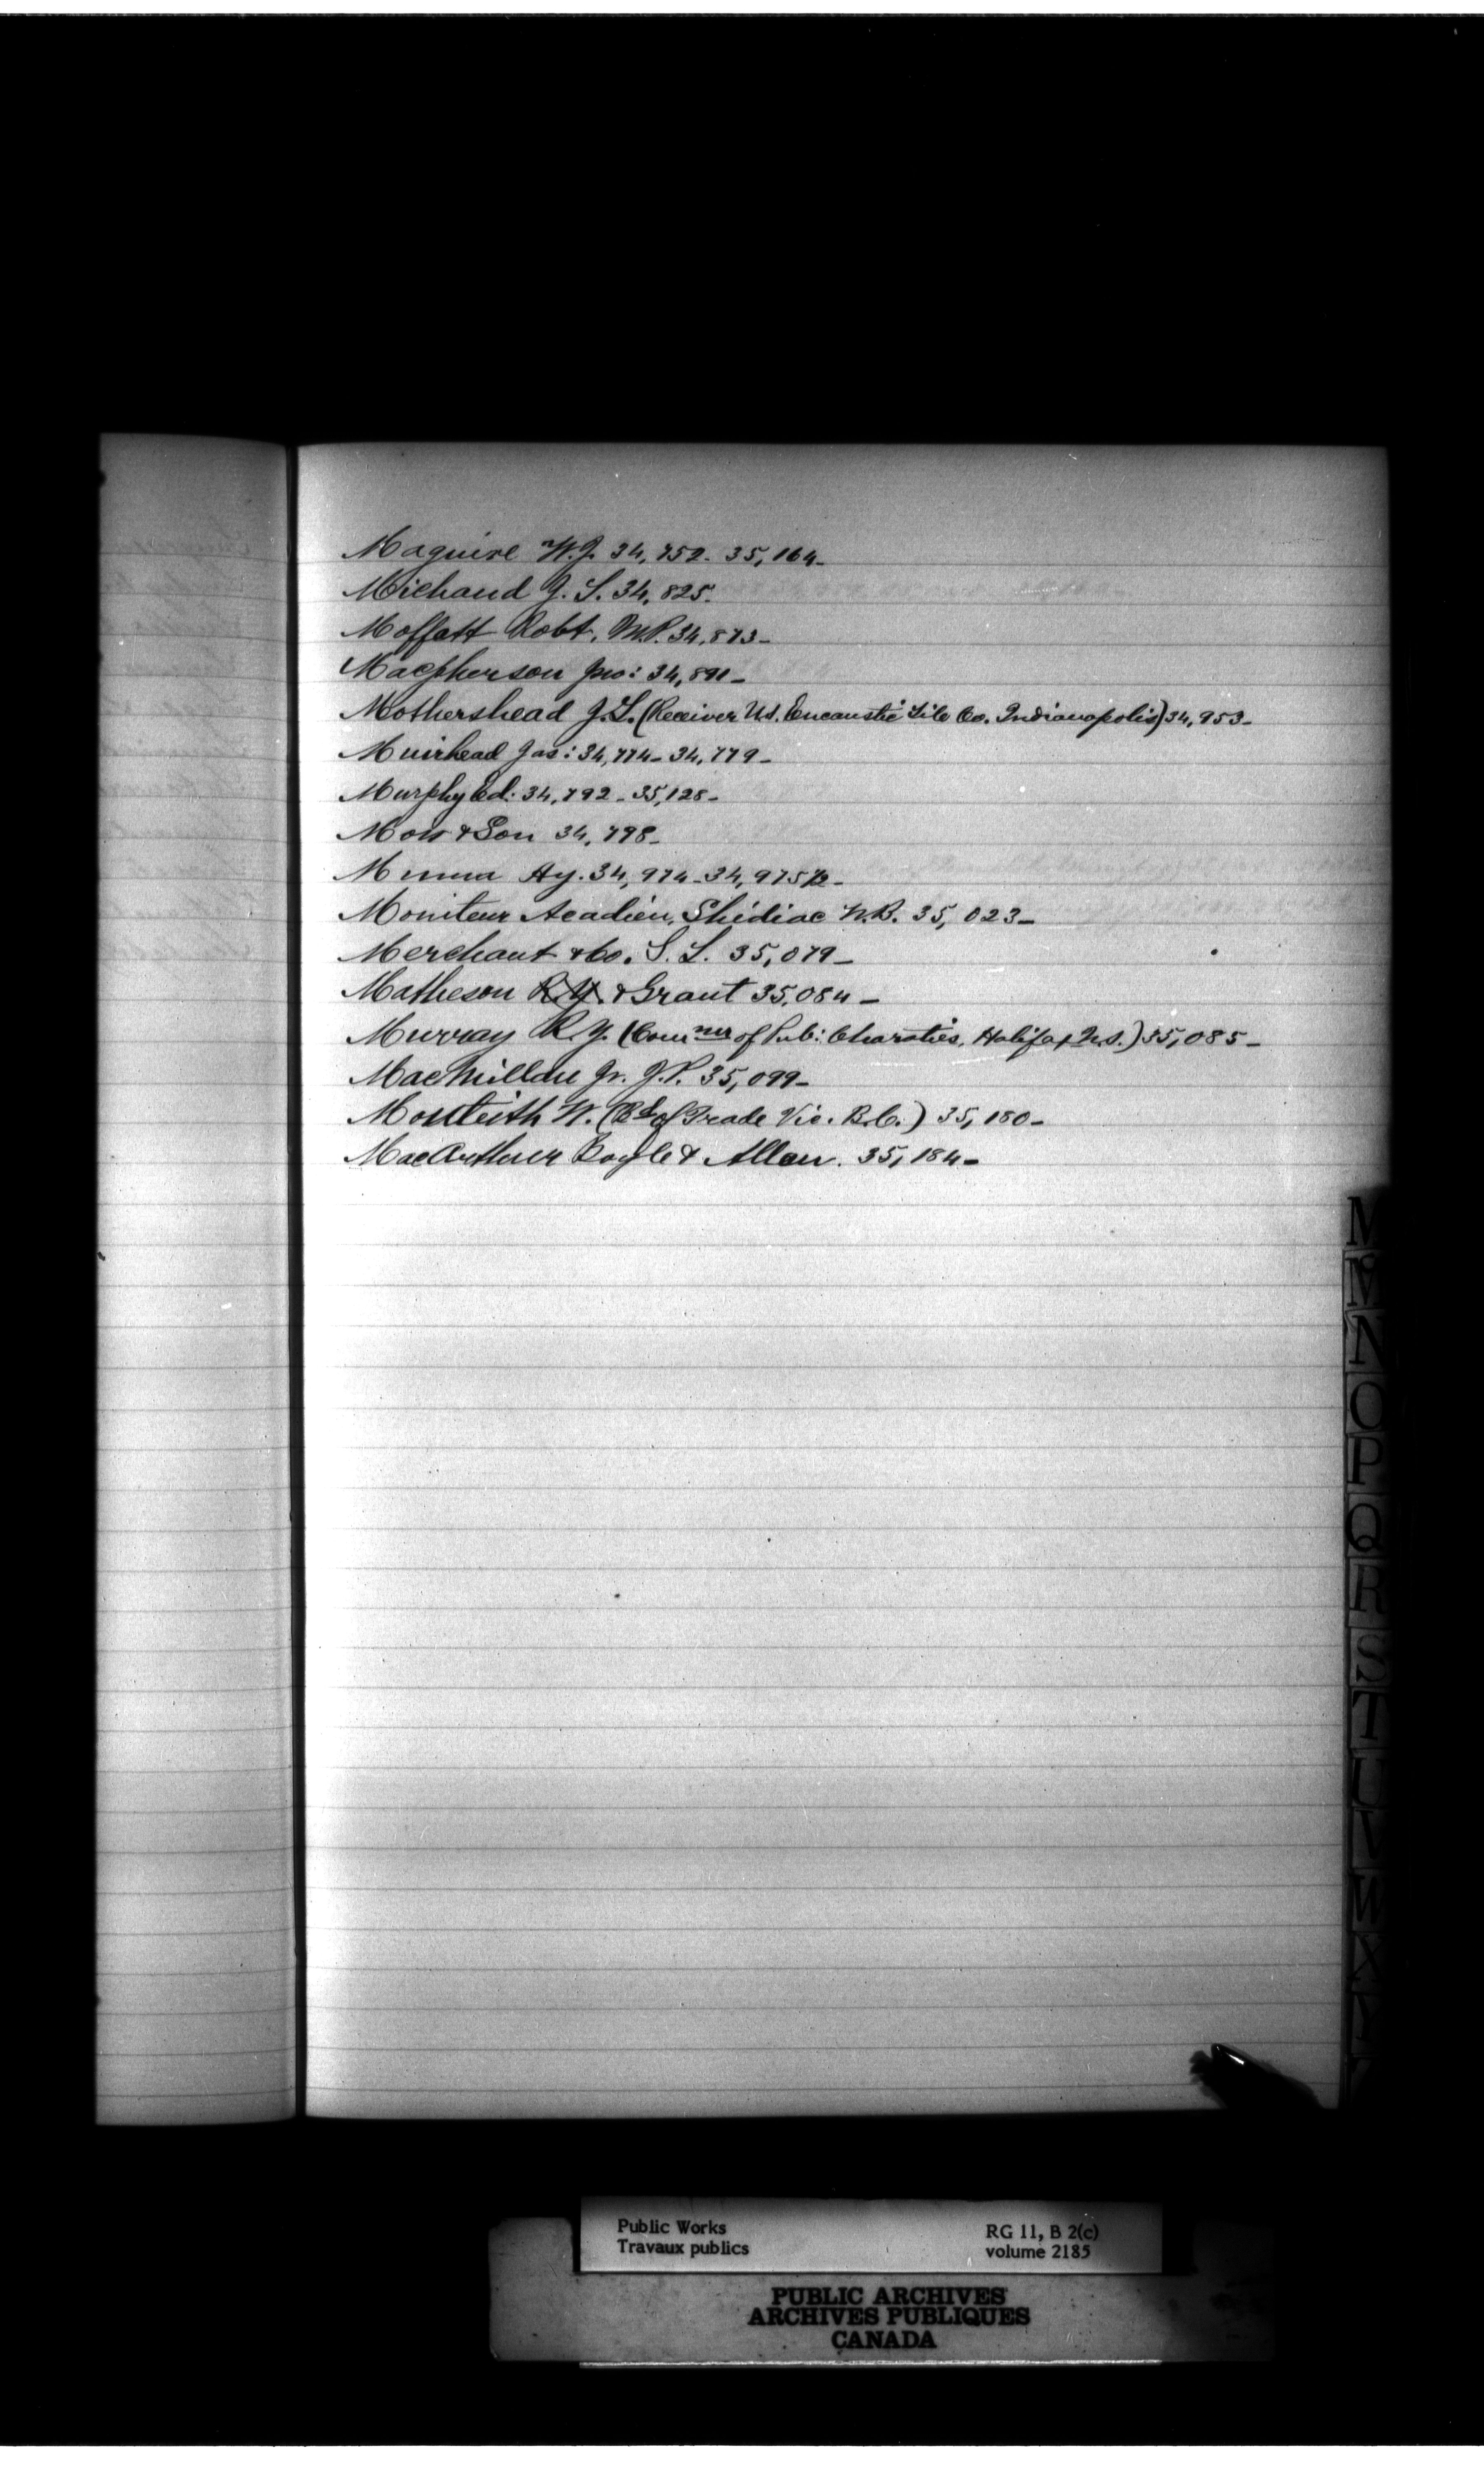 Maguire W.J. 34,752- 35,164-
Michaud J. S. 34,825.
Moffatt Robt. M.P. 34,873-
Macpherson Jno: 34,891-
Mothershead J.L. (Receiver U.S. Encaustic Tile Co. Indianapolis) 34,953-
Muirhead Jas: 34,774- 34,779-
Murphy Ed: 34,792- 35,128-
& Son 34,798-
Hy. 34,974- 34,975½-
Moniteur Acadien, Shédiac N.B. 35,023-
Merchant & Co. S. L. 35,079-
Matheson R.Y. & Grant 35,084-
Murray R.Y. (Comner of Pub: Charities, Halifax N.S.) 35,085-
MacMillan Jr. J.P. 35,099-
Monteith W. (Bd of Trade Vic. B.C.) 35,180-
MacArthur Boyle & Allan. 35,184-
M
Mc
N
O
P
Q
R
S
T
U
V
W
X
Public Works RG 11, B 2(c)
Travaux publics volume 2185
PUBLIC ARCHIVES
ARCHIVES PUBLIQUES
CANADA